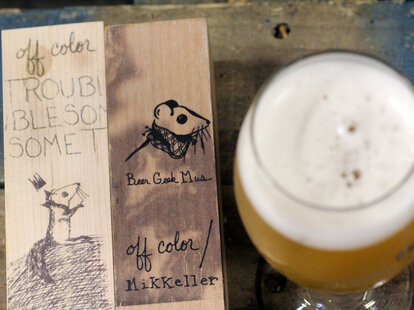 off color
TROUBL
BLESOM
SOME T
Beer Geek Mus
off color /
Mikkeller